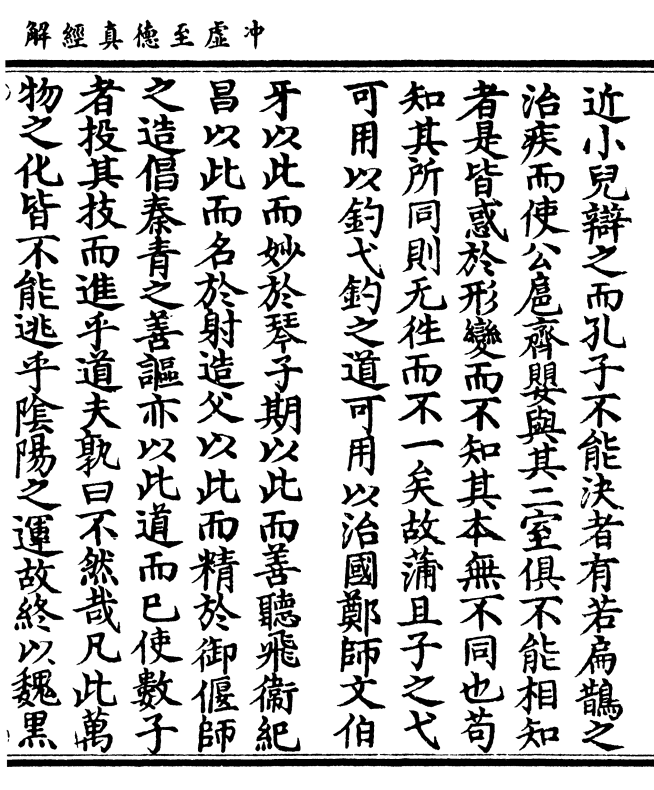 冲虛至德真經解
近小兒辯之而孔子不能決者有若扁鵲之
治疾而使公扈齊嬰與其二室俱不能相知
者是皆惑於形變而不知其本無不同也苟
知其所同則无徃而不一矣故蒲且子之弋
可用以釣弋釣之道可用以治國鄭師文伯
牙以此而妙於琴子期以此而善聽飛衞紀
昌以此而名於射造父以此而精於御偃師
之造倡秦青之善謳亦以此道而已使數子
者投其技而進乎道夫孰曰不然哉凡此萬
物之化皆不能逃乎陰陽之運故終以魏黒